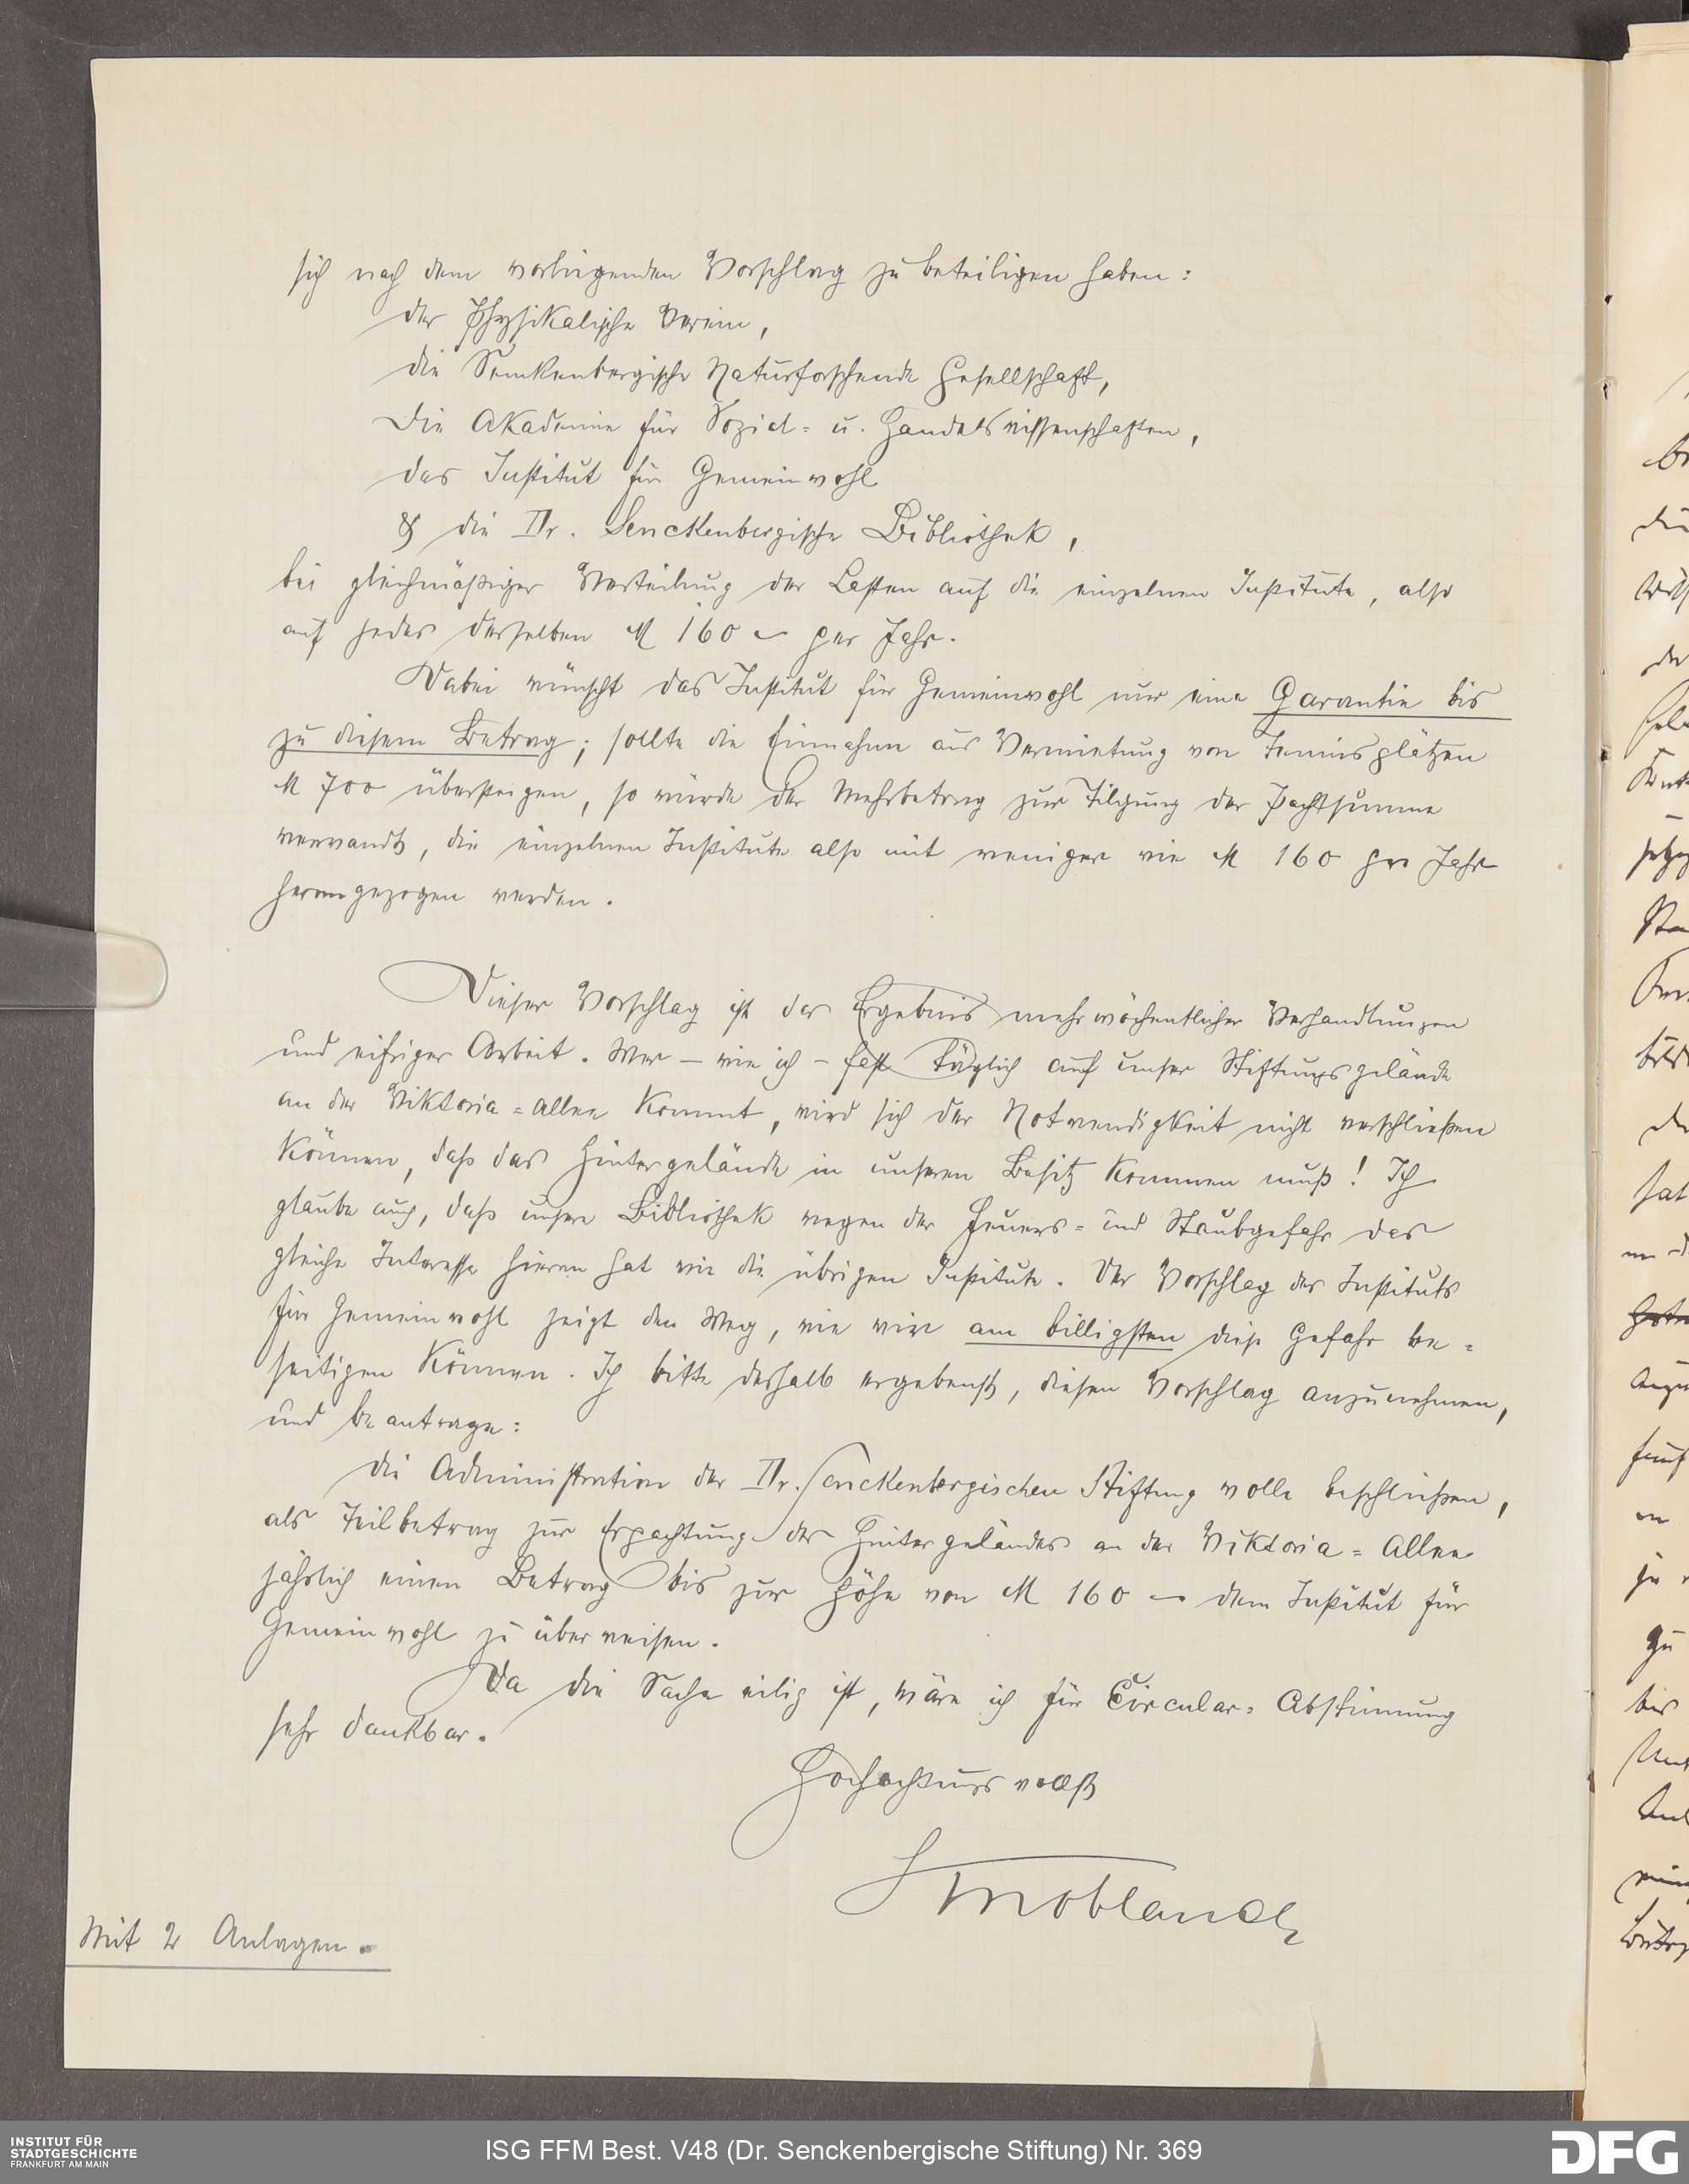 sich nach dem vorliegenden Vorschlag zu beteiligen haben:
der Physikalische Verein,
die Senckenbergische Naturforschende Gesellschaft,
die Akademie für Sozial- u. Handelswissenschaften,
das Institut für Gemeinwohl
& die Dr. Senckenbergische Bibliothek,
bei gleichmäßiger Verteilung der Lasten auf die einzelnen Institute, also
auf jedes derselben M 160 – per Jahr.
Dabei wünscht das Institut für Gemeinwohl nur eine Garantie bis
zu diesem Betrag; sollte die Einnahme aus Vermietung von Tennisplätzen
M 700 übersteigen, so würde der Mehrbetrag zur Tilgung der Pachtsumme
verwandt, die einzelnen Institute also mit weniger wie M 160 pro Jahr
herangezogen werden.
Dieser Vorschlag ist das Ergebnis mehrwöchentlicher Verhandlungen
und eifriger Arbeit. Wer – wie ich – fast täglich auf unser Stiftungsgelände
an der Viktoria-Allee kommt, wird sich der Notwendigkeit nicht verschließen
können, daß das Hintergelände in unseren Besitz kommen muß! Ich
glaube auch, daß unsere Bibliothek wegen der Feuers- und Staubgefahr das
gleiche Interesse hieran hat wie die übrigen Institute. Der Vorschlag des Instituts
für Gemeinwohl zeigt den Weg, wie wir am billigsten diese Gefahr be-
seitigen können. Ich bitte deshalb ergebenst, diesen Vorschlag anzunehmen,
und beantrage:
die Administration der Dr. Senckenbergischen Stiftung wolle beschließen,
als Teilbetrag zur Erpachtung des Hintergeländes an der Viktoria-Allee
jährlich einen Betrag bis zur Höhe von M 160 – dem Institut für
Gemeinwohl zu überweisen.
Da die Sache eilig ist, wäre ich für Circular-Abstimmung
sehr dankbar.
Hochachtungsvollst
Mit 2 Anlagen.
INSTITUT FÜR
STADTGESCHICHTE
FRANKFURT AM MAIN
ISG FFM Best. V48 (Dr. Senckenbergische Stiftung) Nr. 369
DFG